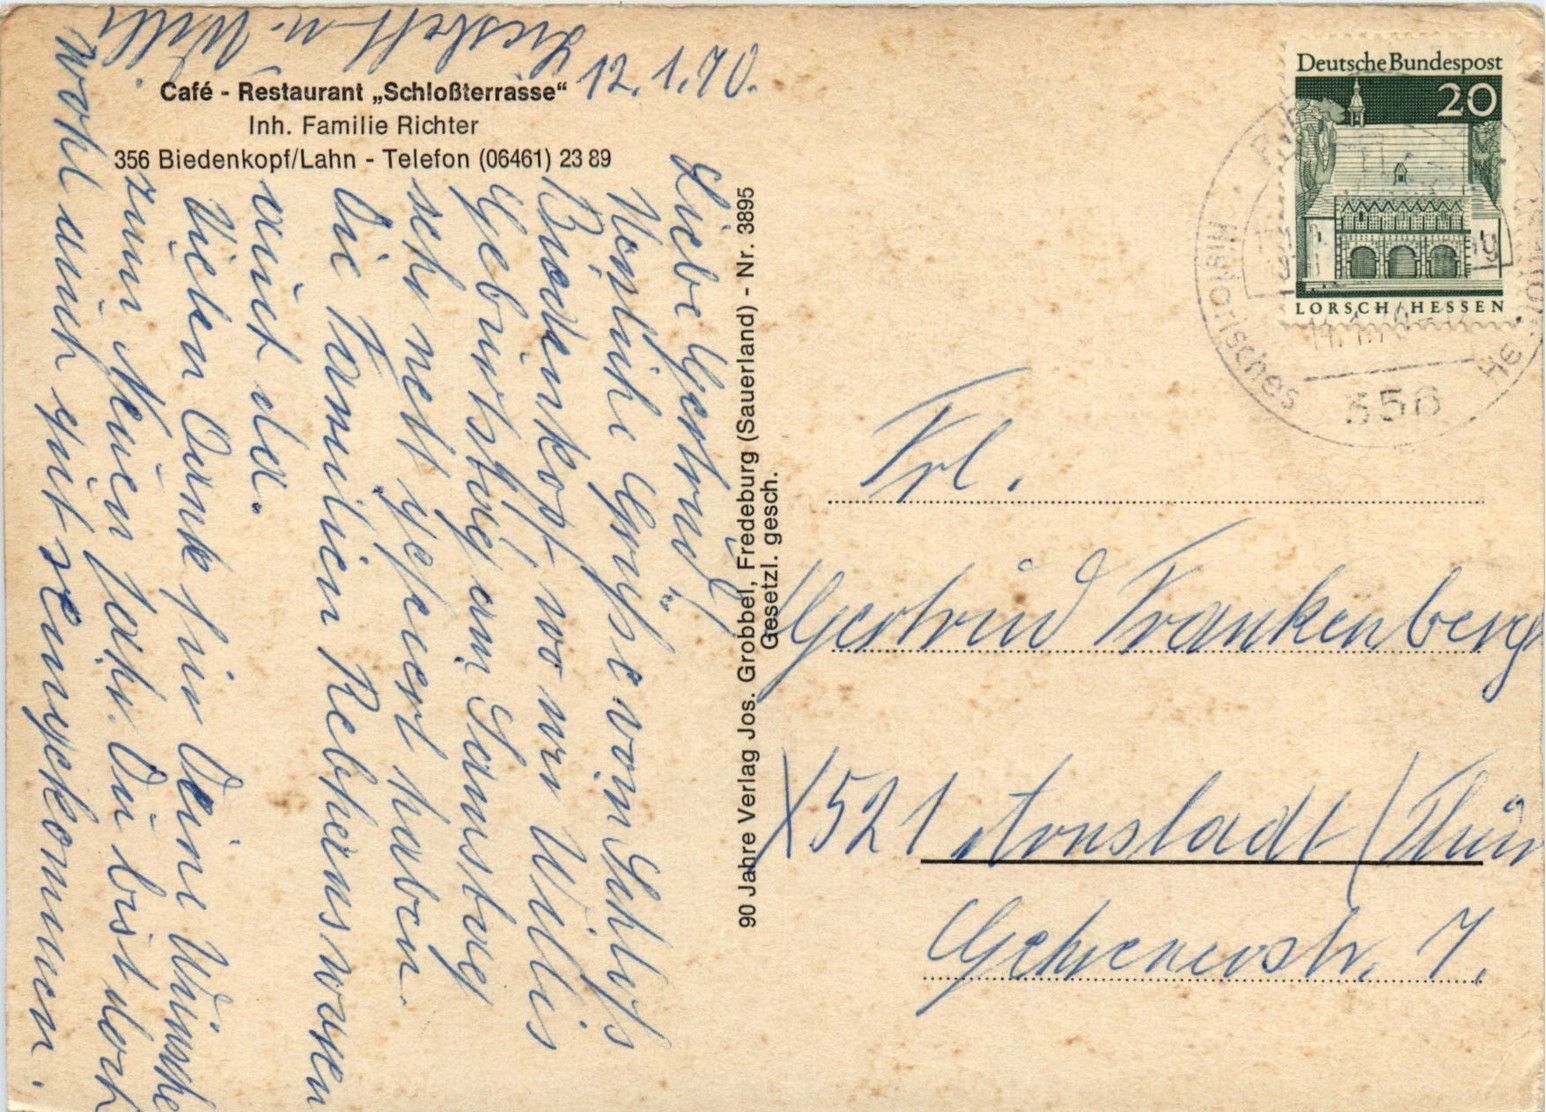 Café - Restaurant „Schloßterrasse“
Inh. Familie Richter
356 Biedenkopf/Lahn - Telefon (06461) 23 89
12.1.70.
Liebe Gertrud
Herzliche Grüße vom Schloß
Biedenkopf, wo wir Willis
Geburtstag am Samstag
sehr nett gefeiert haben.
Die Familien Rebhens waren
auch da.
Vielen Dank für Deine Wünsche
zum Neuen Jahr. Du bist dort
wohl auch gut reingekommen.
Liesbeth u. Willi
90 Jahre Verlag Jos. Grobbel, Fredeburg (Sauerland) - Nr. 3895
Gesetzl. gesch.
Deutsche Bundespost
20
LORSCH/HESSEN
Historisches
356
Frl.
Gertrud Frankenberg
X521 Arnstadt/Thür
Gehrenerstr. 7.